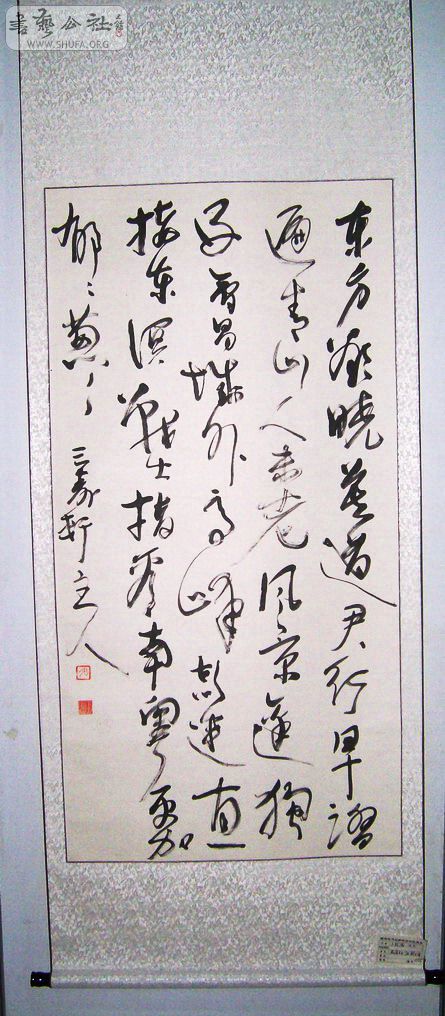 書藝公社
WWW.SHUFA.ORG
东方欲曉莫道君行早踏
遍青山人未老风景邊獨
好會昌城外高峰颠連直
接东溟戰士指看南粤更加
郁々葱々 三 軒主人